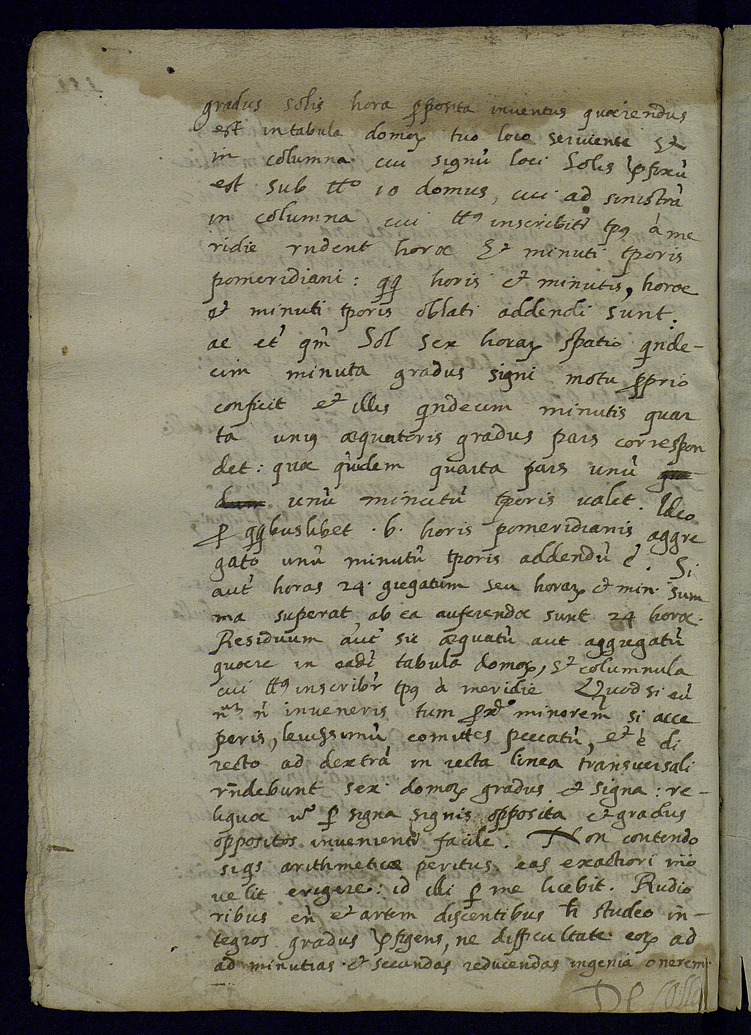 gradus solis hora ꝓposita inventus quærendus
est in tabula domoꝝ tuo loco serviente Et
in columna cui signũ loci Solis p̃fixũ
est sub ttº 10 domus, cui ad sinistrã
in columna cui ttꝰ inscribit̃ tpꝰ à me
ridie rñdent horæ Et minuti tp̃oris
pomeridiani: qq̃ horis et minutis, horæ
et minuti tp̃oris oblati addendi sunt.
ac et̃ qm̃ Sol sex horaꝝ spatio qnde-
cim minuta gradus signi motu ꝓprio
conficit et illis qndecim minutis quar
ta uniꝰ æquatoris gradus pars correspon
det: quæ quidem quarta pars unũ
unũ minutũ tp̃oris valet. Ideo
ꝑ qq̃buslibet .6. horis pomeridianis aggre
gato unũ minutũ tp̃oris addendũ ẽ. Si
aut̃ horas 24. gregatum seu horaꝝ et min. sum
ma superat, ab ea auferendæ sunt 24 horæ.
Residuum aut̃ sic æquatũ aut aggregatũ
quære in eadẽ tabula domoꝝ, et columnula
cui ttꝰ inscribit̃ tpꝰ à meridie. Quod si eũ
inveneris tum minorem si acce
peris, levissimũ comittes peccatũ, et è di
recto ad dextrã in recta linea transversali
rñdebunt sex domoꝝ gradus et signa: re-
liquæ ꝑ signa signis opposita et gradus
oppositos invenient̃ facile. Non contendo
siqs arithmeticæ peritus eas exactiori mõ
velit erigere: id illi ꝑ me licebit. Rudio
ribus en̄ et artem discentibus studeo in-
tegros gradus p̃figens, ne difficultate eoꝝ ad
ad minutias et secundas reducendas ingenia onerem.